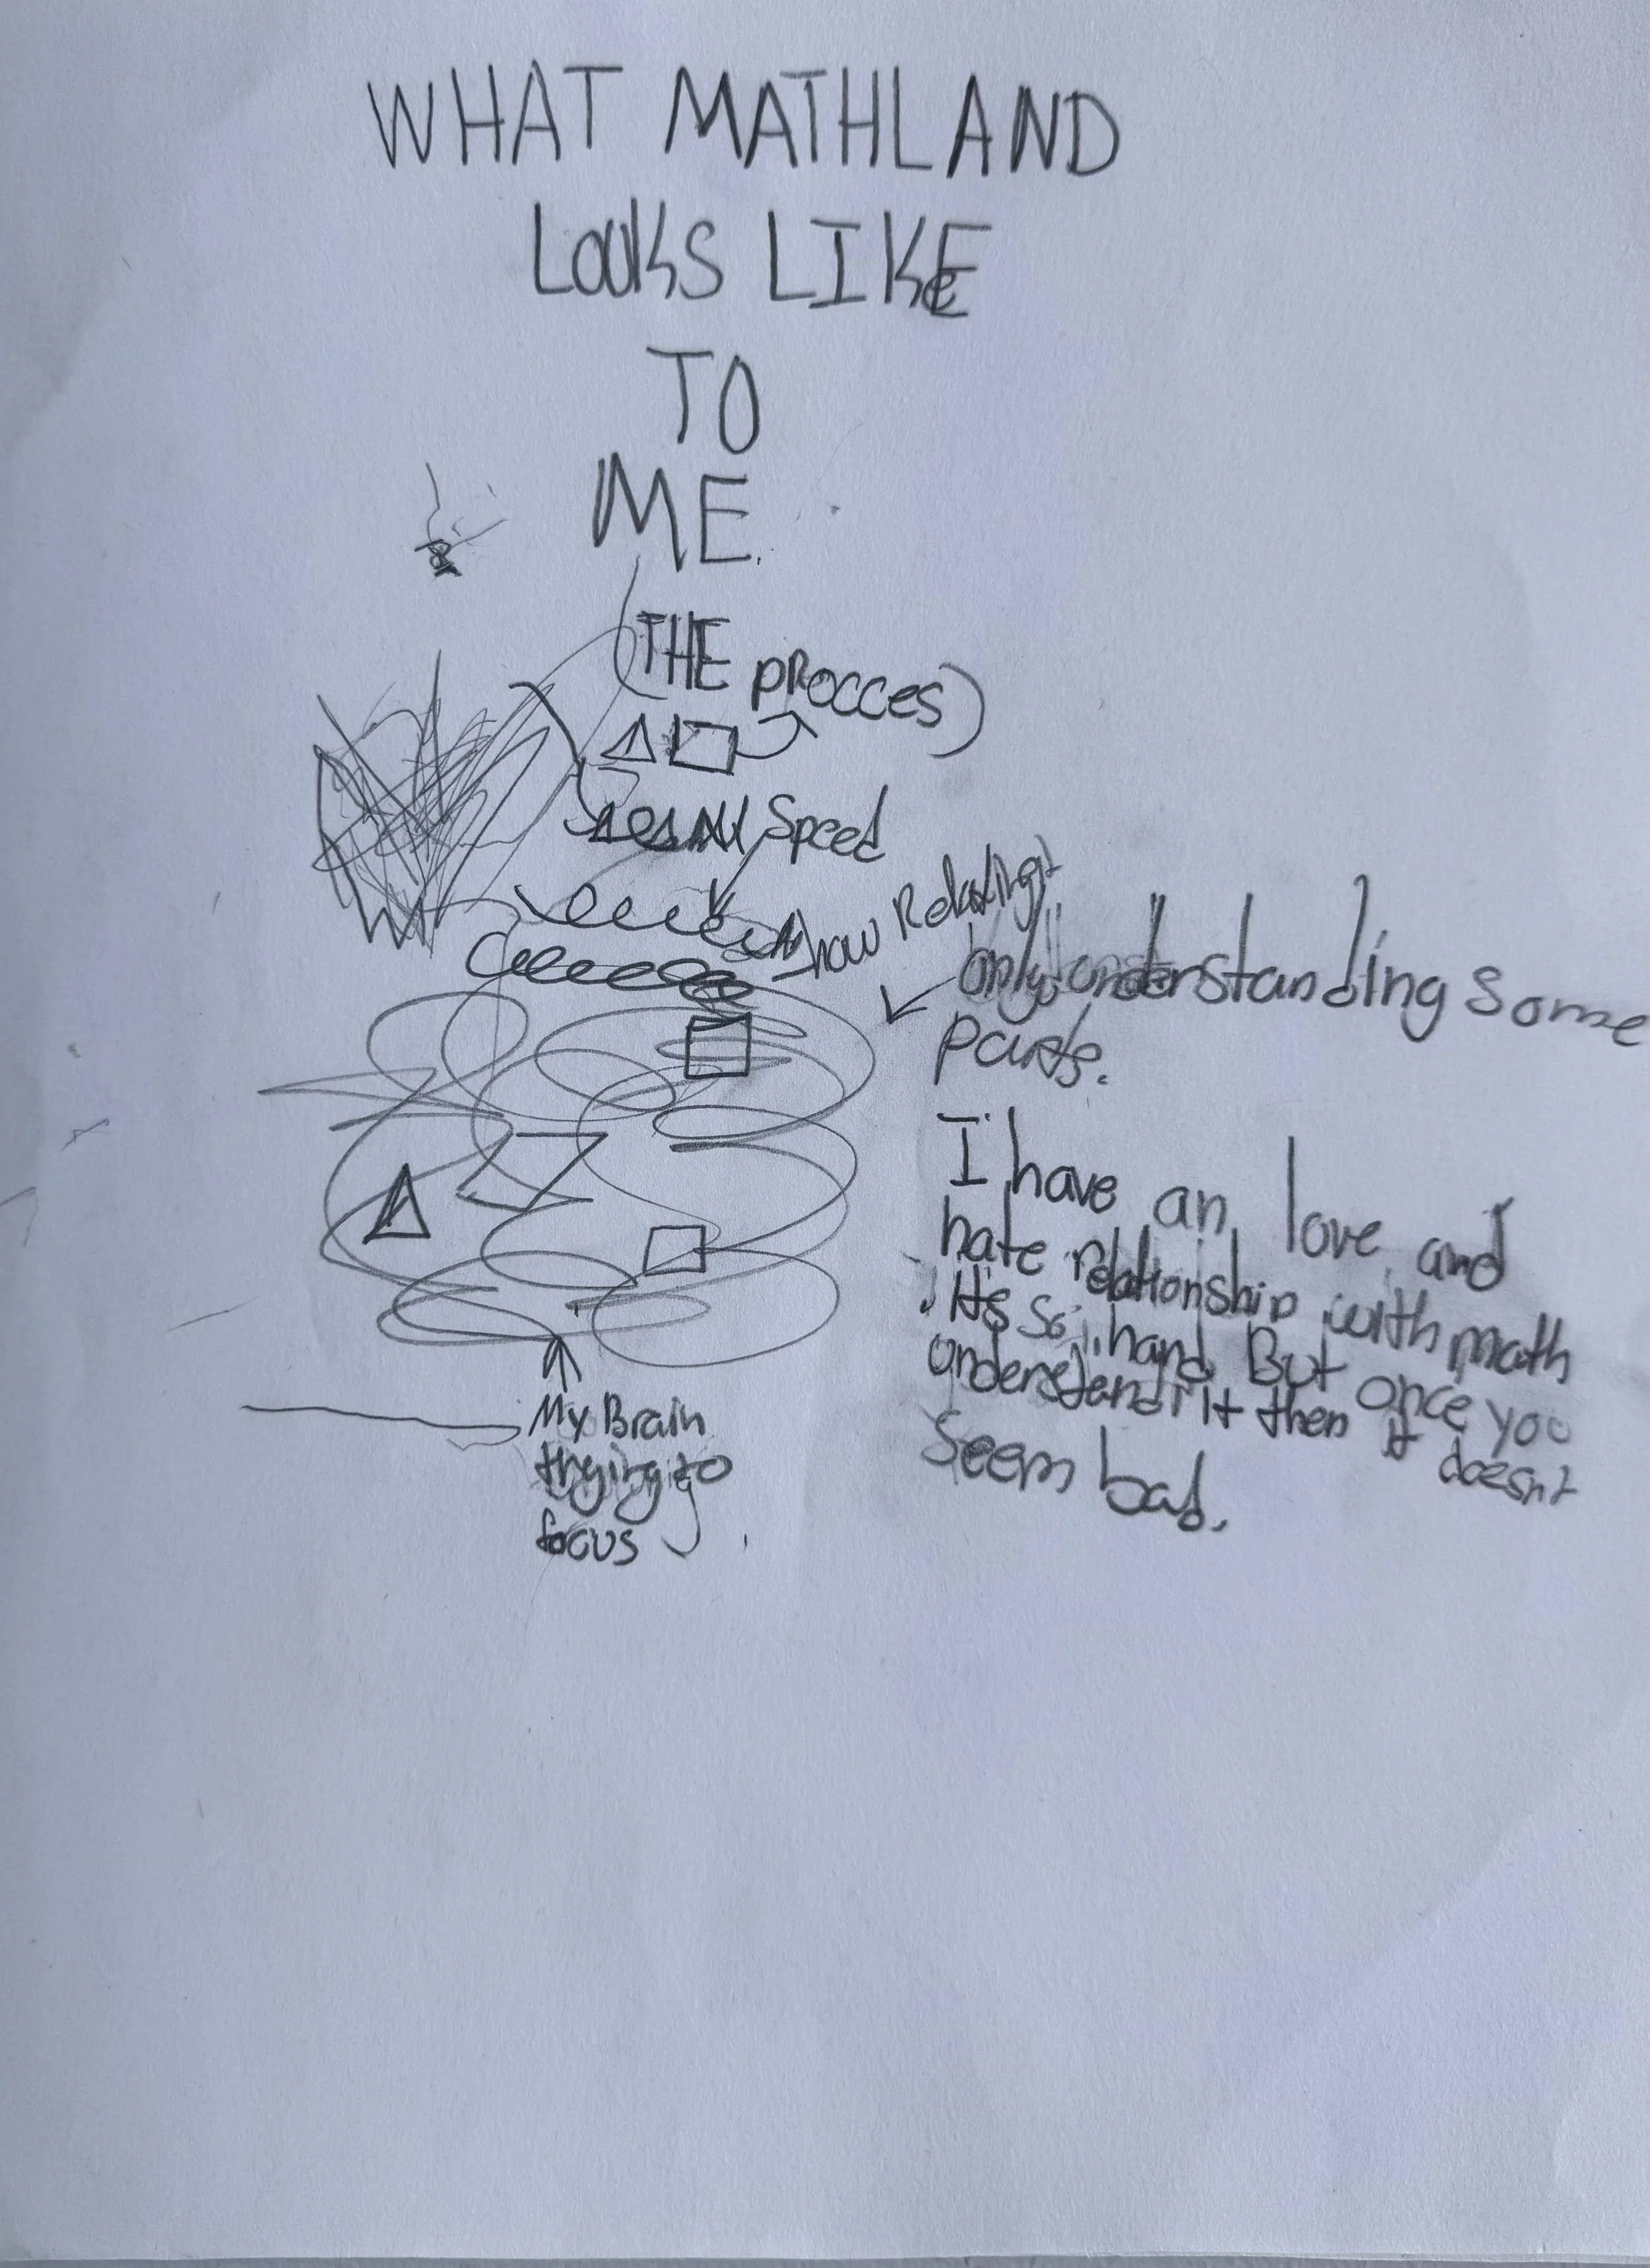 WHAT MATHLAND
LOOKS LIKE
TO
ME.
(THE PROCCES)
Speed
show Relaxing
only understanding some
parts.
I have an love and
hate relationship with math
. It's so hard. But once you
understand it then it doesn't
seem bad.
My Brain
trying to
focus